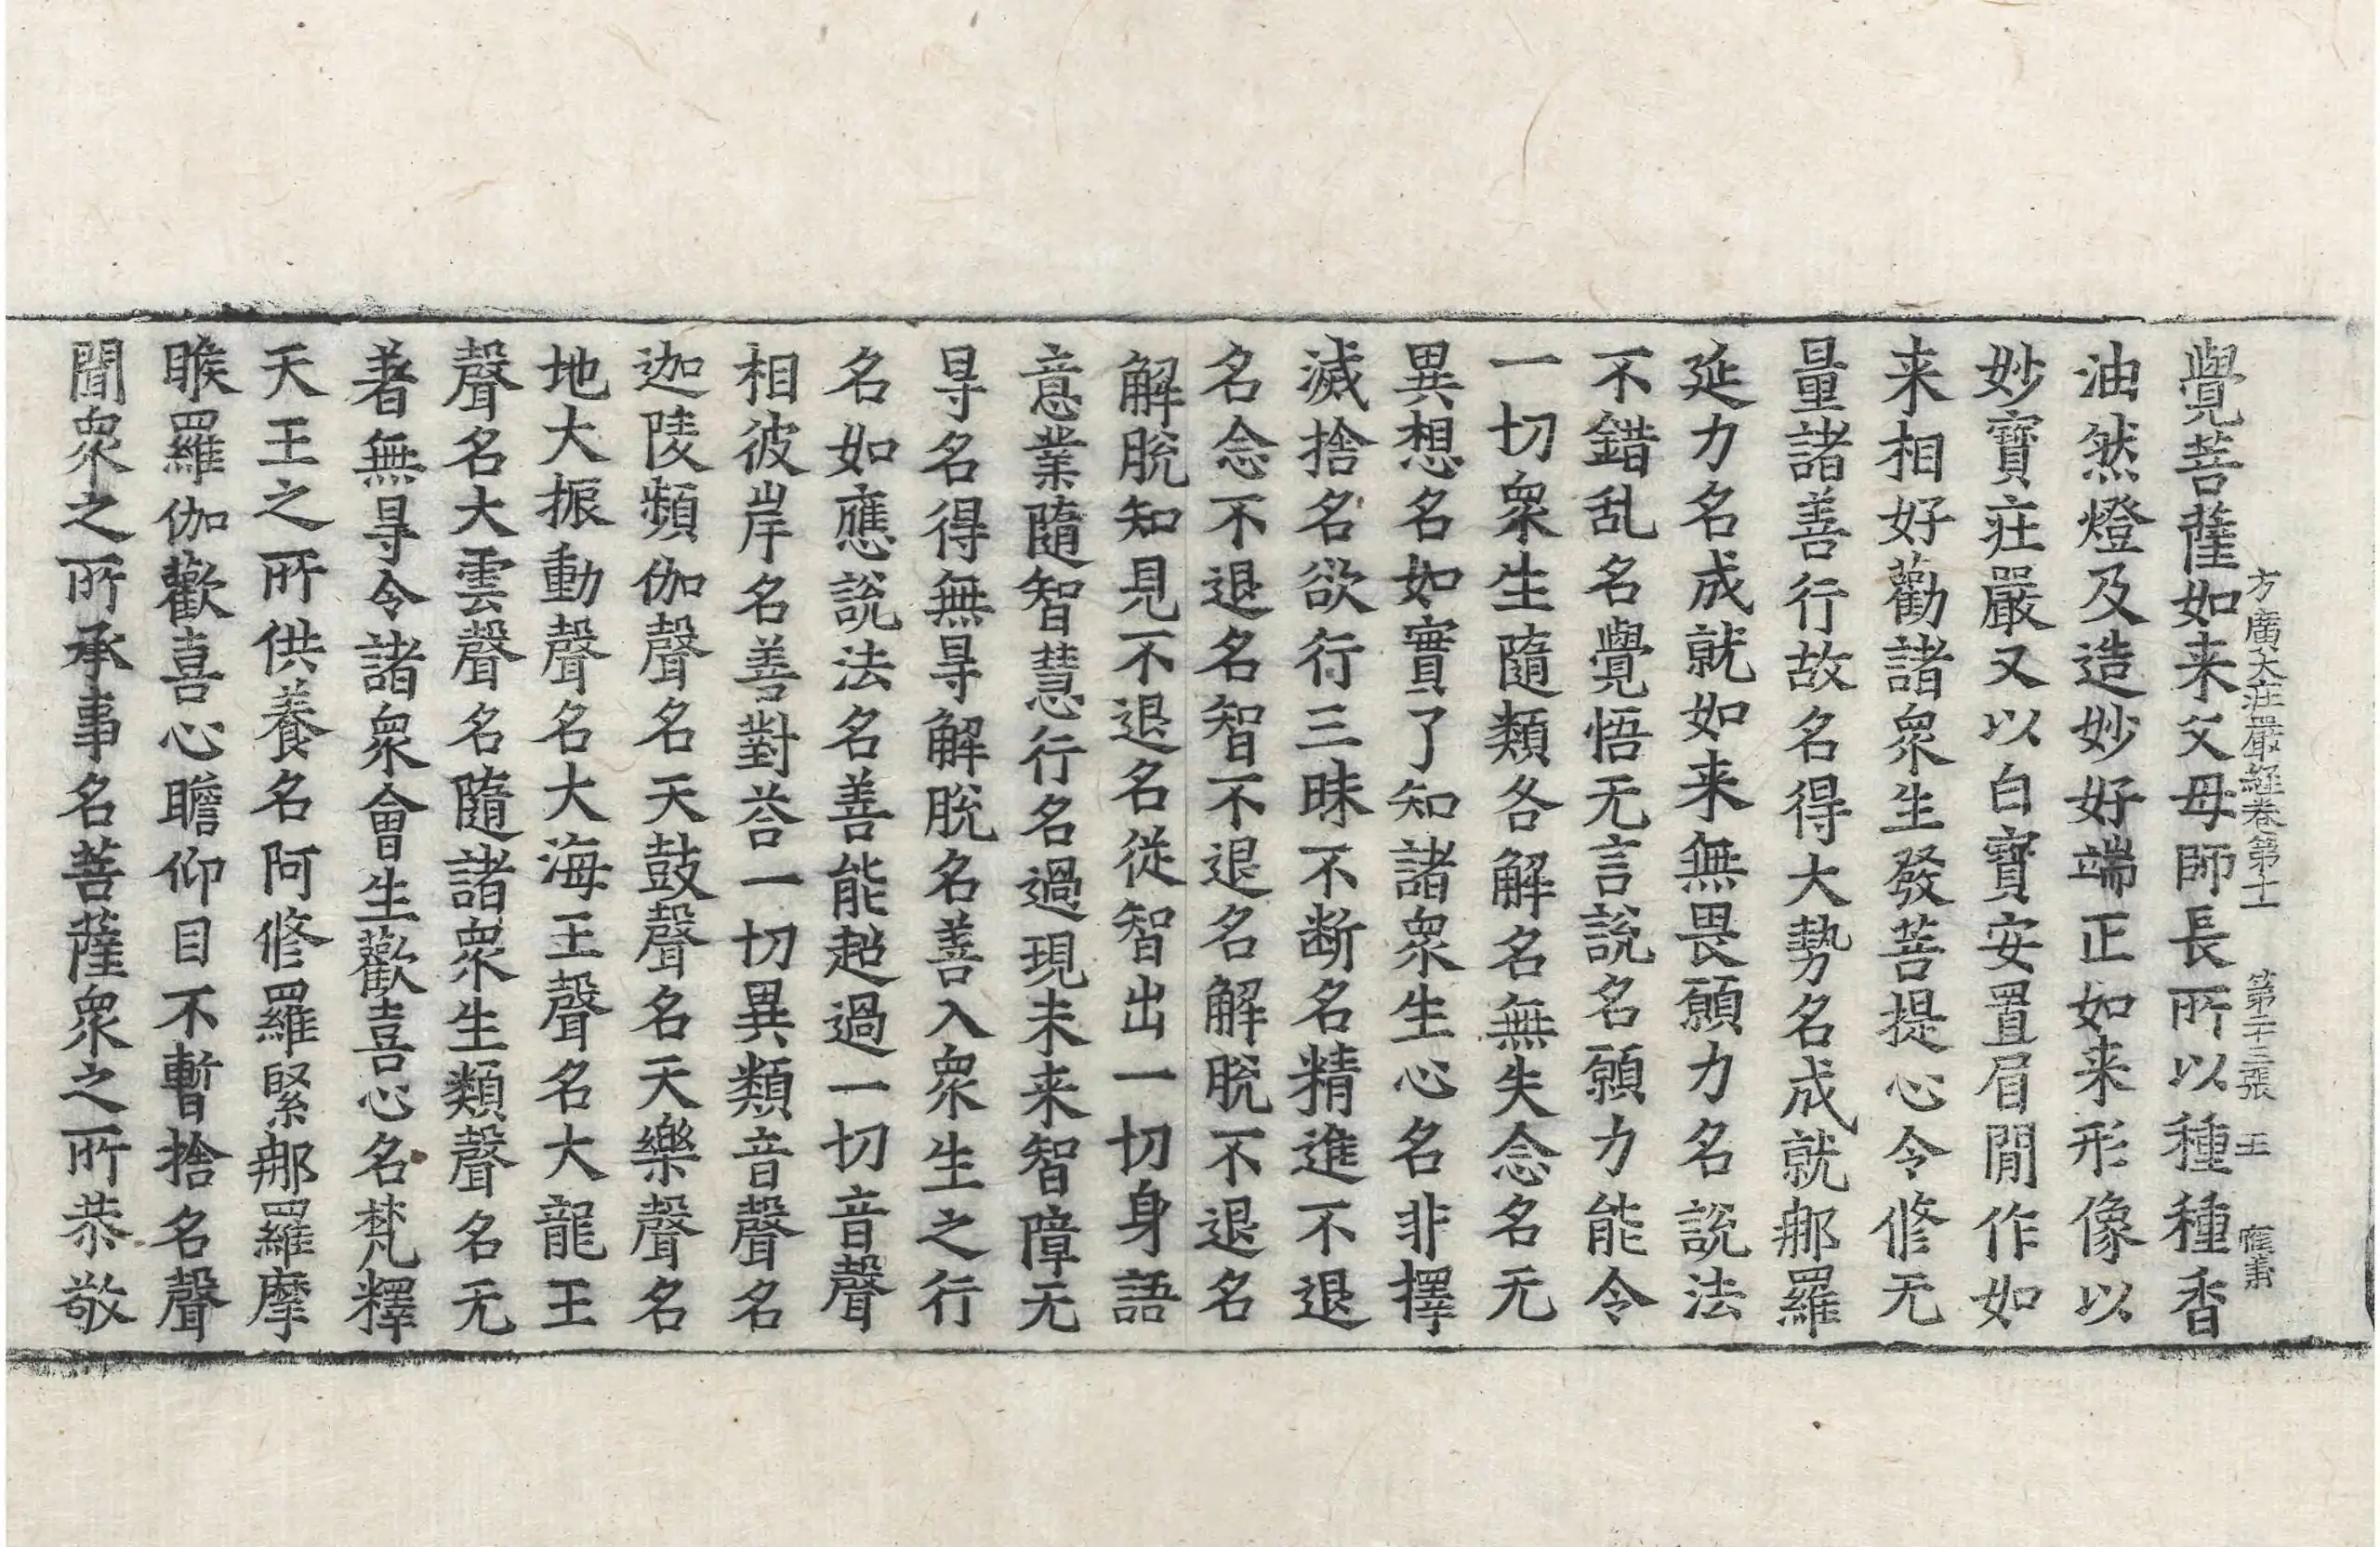 覺菩薩如来父母師長所以種種香
方廣大莊嚴經卷第十一　第二十三張　王
油然燈及造妙好端正如来形像以
妙寶莊嚴又以白寶安置眉間作如
来相好勸諸衆生發菩提心令修无
量諸善行故名得大勢名成就那羅
延力名成就如来無畏願力名說法
不錯乱名覺悟无言說名願力能令
一切衆生隨類各解名無失念名无
異想名如實了知諸衆生心名非擇
滅捨名欲行三昧不断名精進不退
名念不退名智不退名解脫不退名
解脫知見不退名從智出一切身語
意業隨智慧行名過現未来智障无
㝵名得無㝵解脫名善入衆生之行
名如應說法名善能超過一切音聲
相彼岸名善對荅一切異類音聲名
迦陵頻伽聲名天鼓聲名天樂聲名
地大振動聲名大海王聲名大龍王
聲名大雲聲名隨諸衆生類聲名无
著無㝵令諸衆會生歡喜心名梵釋
天王之所供養名阿修羅緊那羅摩
睺羅伽歡喜心瞻仰目不暫捨名聲
聞衆之所承事名菩薩衆之所恭敬